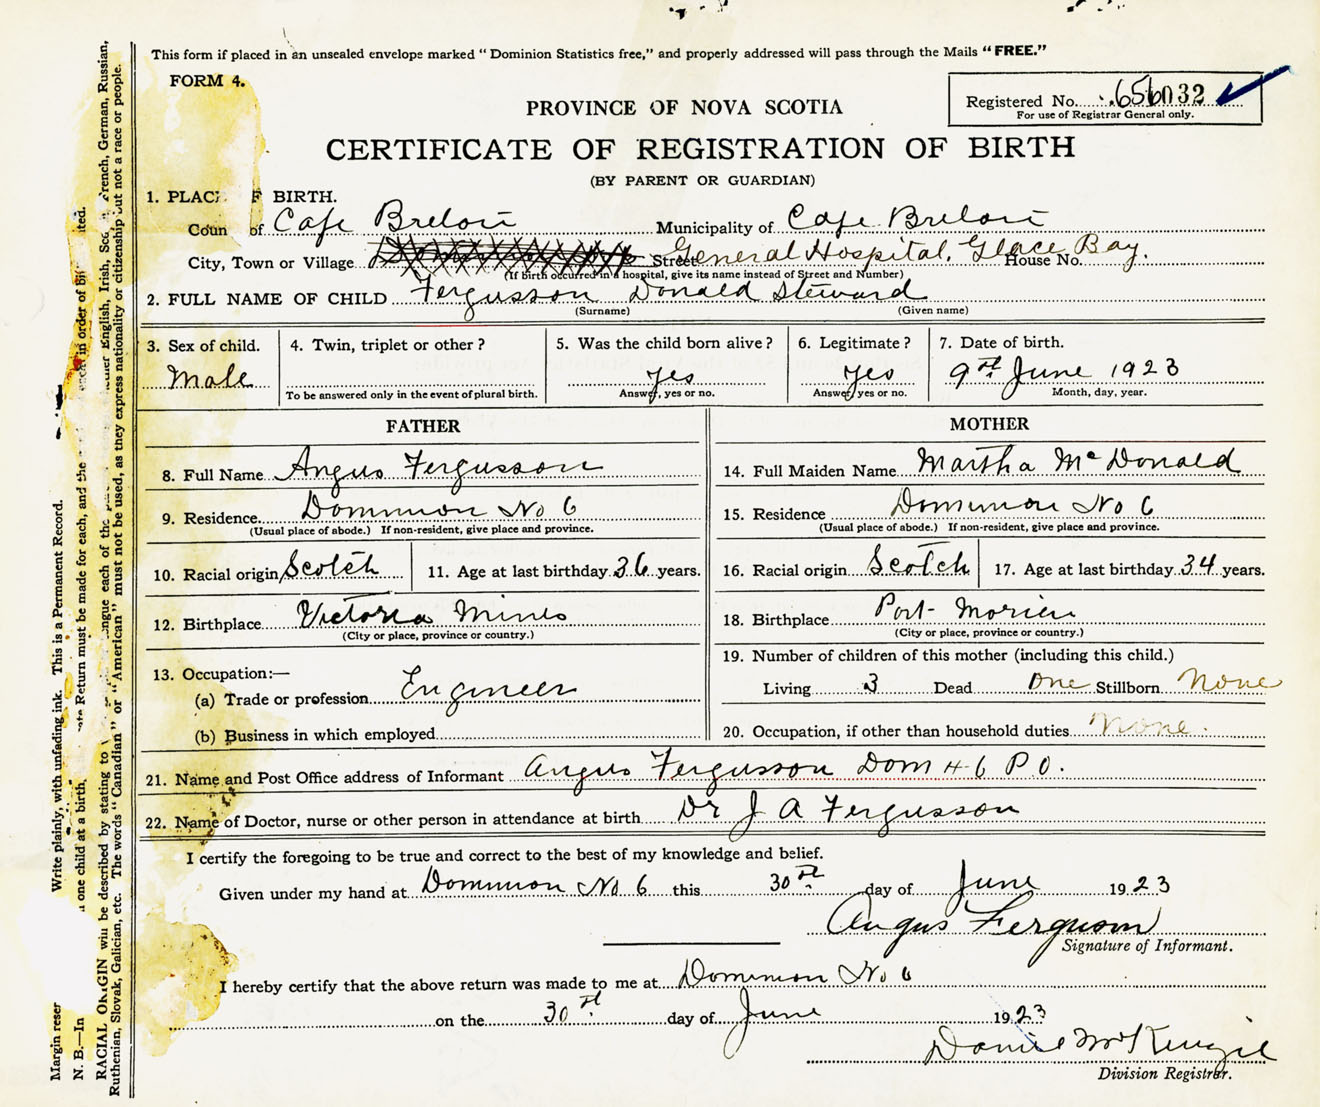 This form if placed in an unsealed envelope marked “Dominion Statistics free,” and properly addressed will pass through the Mails “FREE.”
FORM 4.
Registered No. 656032
For use of Registrar General only.
PROVINCE OF NOVA SCOTIA
CERTIFICATE OF REGISTRATION OF BIRTH
(BY PARENT OR GUARDIAN)
1. PLAC F BIRTH.
Coun of Cape Breton Municipality of Cape Breton
City, Town or Village Street General Hospital, Glace Bay. House No.
(If birth occurred in hospital, give its name instead of Street and Number)
2. FULL NAME OF CHILD Fergusson Donald Steward
(Surname) (Given name)
3. Sex of child. 4. Twin, triplet or other? 5. Was the child born alive? 6. Legitimate? 7. Date of birth.
Male Yes Yes 9th June 1923
To be answered only in the event of plural birth. Answer, yes or no. Answer, yes or no. Month, day, year.
FATHER
8. Full Name Angus Fergusson
9. Residence Dominion No 6
(Usual place of abode.) If non-resident, give place and province.
10. Racial origin Scotch 11. Age at last birthday 36 years.
12. Birthplace Victoria Mines
(City or place, province or country.)
13. Occupation:—
(a) Trade or profession Engineer
(b) Business in which employed
MOTHER
14. Full Maiden Name Martha McDonald
15. Residence Dominion No 6
(Usual place of abode.) If non-resident, give place and province.
16. Racial origin Scotch 17. Age at last birthday 34 years.
18. Birthplace Port Morien
(City or place, province or country.)
19. Number of children of this mother (including this child.)
Living 3 Dead One Stillborn None
20. Occupation, if other than household duties None.
21. Name and Post Office address of Informant Angus Fergusson Dom # 6 P.O.
22. Name of Doctor, nurse or other person in attendance at birth Dr J A Fergusson
I certify the foregoing to be true and correct to the best of my knowledge and belief.
Given under my hand at Dominion No 6 this 30th day of June 1923
Angus Ferguson
Signature of Informant.
I hereby certify that the above return was made to me at Dominion No 6
on the 30th day of June 1923
Daniel McKenzie
Division Registrar.
Margin reser Write plainly, with unfading ink. This is a Permanent Record.
N. B.—In one child at a birth, Return must be made for each, and the in order of
RACIAL ORIGIN will be described by stating to each of the English, Irish, French, German, Russian,
Ruthenian, Slovak, Galician, etc. The words “Canadian” or “American” must not be used, as they express nationality or citizenship but not a race or people.